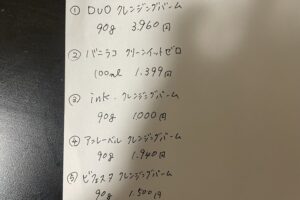 ① DUO クレンジングバーム
90g 3.960円
② バニラコ クリーンイットゼロ
100ml 1.399円
③ ink. クレンジングバーム
90g 1000円
④ アンレーベル クレンジングバーム
90g 1.940円
⑤ ビフェスタ クレンジングバーム
90g 1.500円